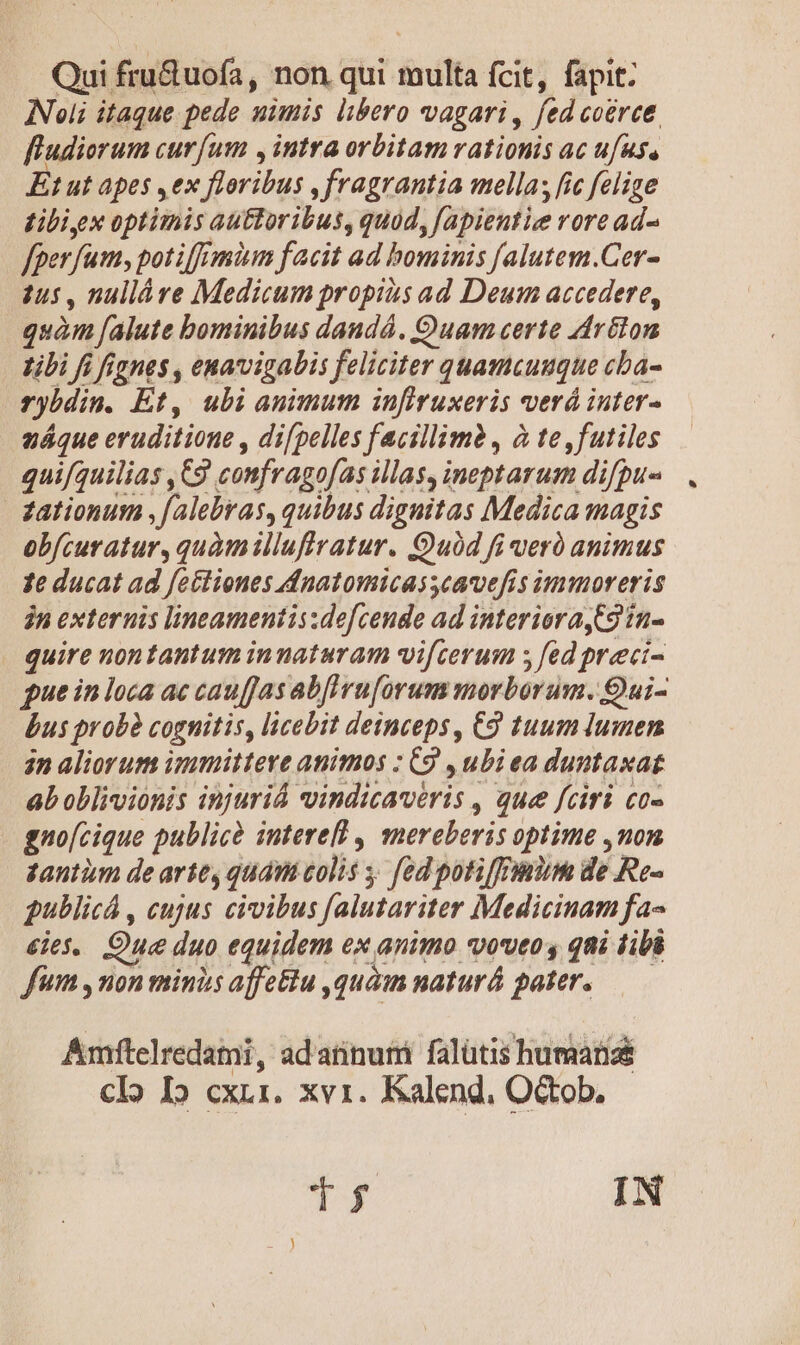 Qui fructuoſa, non qui multa ſcit, ſapit:
Noli itaque pede nimis libero vagari, ſed coërce
ſtudiorum curſum, intra orbitam rationis ac uſus.
Et ut apes, ex floribus, fragrantia mella; ſic ſelige
tibi, ex optimis auctoribus, quod, ſapientiæ rore ad-
ſperſum, potiſſimùm facit ad hominis ſalutem. Cer-
tus, nullâ re Medicum propiùs ad Deum accedere,
quàm ſalute hominibus dandâ. Quam certe Arcton
tibi ſi ſignes, enavigabis feliciter quamcunque cha-
rybdin. Et, ubi animum inſtruxeris verâ inter-
nâque eruditione, diſpelles facillimè, à te, futiles
quiſquilias, & confragoſas illas, ineptarum diſpu-
tationum, ſalebras, quibus dignitas Medica magis
obſcuratur, quàm illuſtratur. Quòd ſi verò animus
te ducat ad ſectiones Anatomicas; cave ſis immoreris
in externis lineamentis: deſcende ad interiora, & in-
quire non tantum in naturam viſcerum; ſed præci-
pue in loca ac cauſſas abſtruſorum morborum. Qui-
bus probè cognitis, licebit deinceps, & tuum lumen
in aliorum immittere animos: &, ubi ea duntaxat
ab oblivionis injuriâ vindicavèris, quæ ſciri co-
gnoſcique publicè intereſt, mereberis optime, non
tantùm de arte, quam colis; ſed potiſſimùm de Re-
publicâ, cujus civibus ſalutariter Medicinam fa-
cies. Quæ duo equidem ex animo voveo, qui tibi
ſum, non minùs affectu, quàm naturâ pater.
Amſtelredami, ad annum ſalutis humanæ
cIↄ Iↄ cxlı. xvı. Kalend. Octob.
† 5 IN